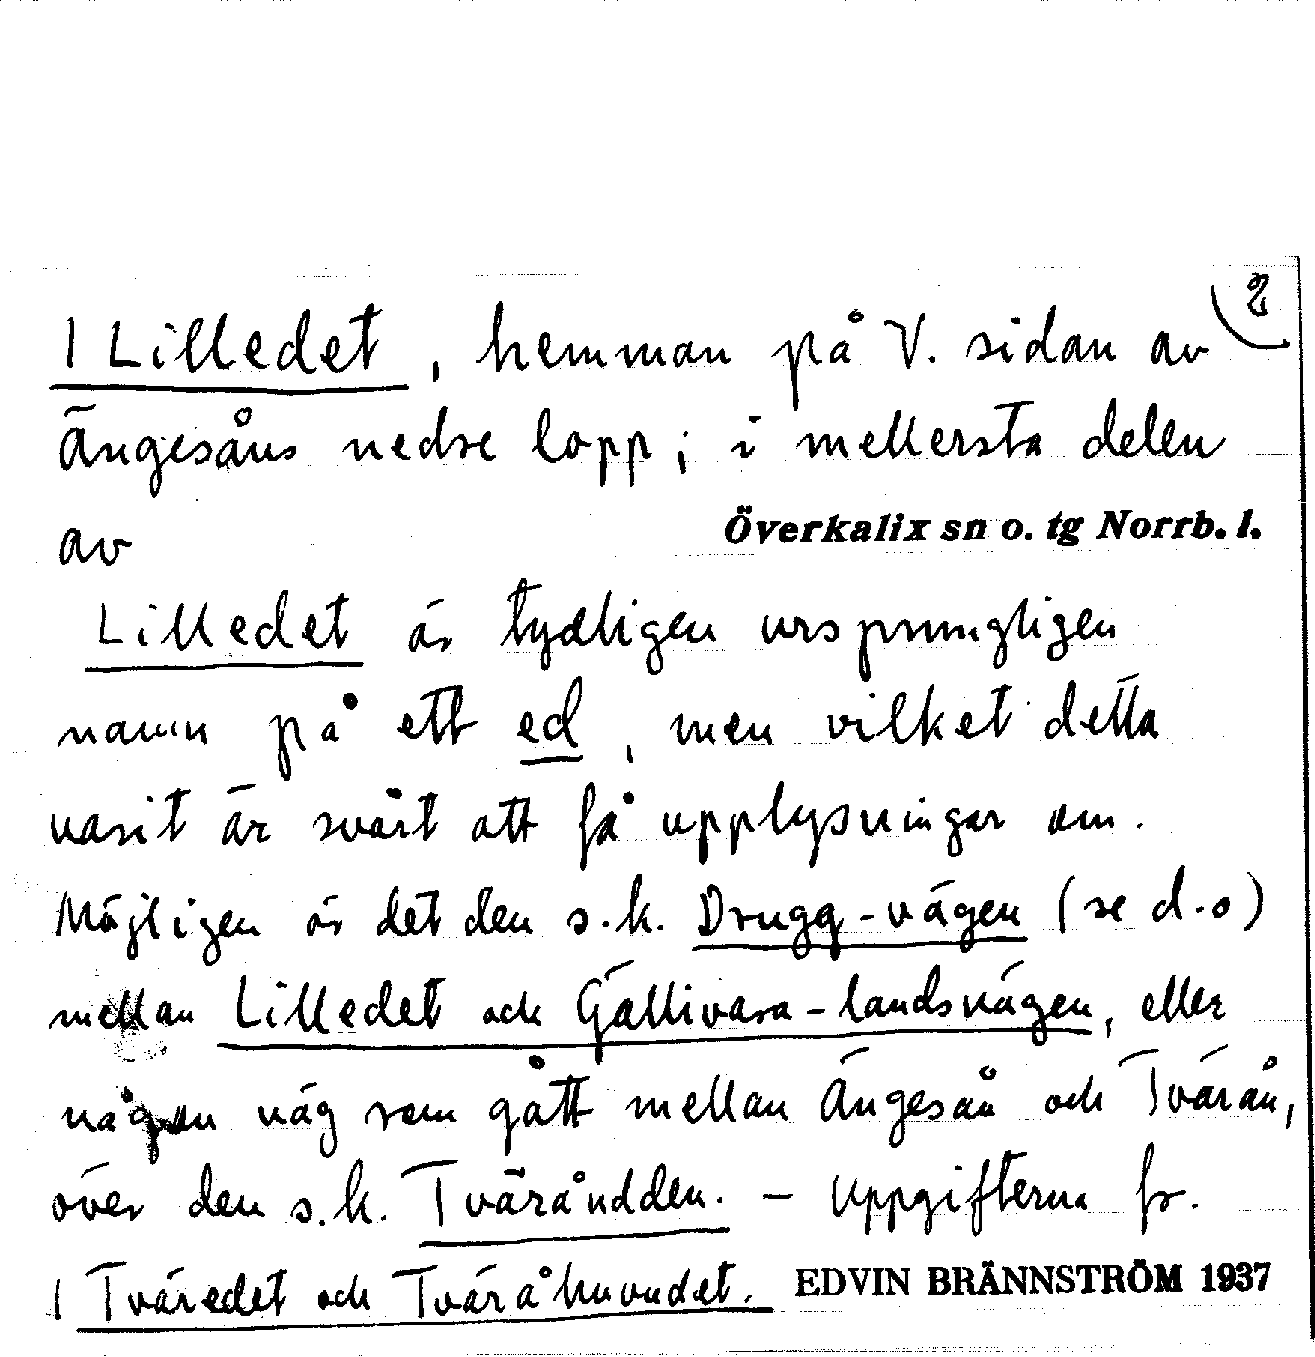 2
1 Lilledet, hemman på V. sidan av
Ängesåns nedre lopp; i mellersta delen
av Överkalix sn o. tg Norrb. l.
Lilledet är tydligen ursprungligen
namn på ett ed, men vilket detta
varit är svårt att få upplysningar om.
Möjligen är det den s.k. Drugg-vägen (se d.o)
mellan Lilledet och Gällivara-landsvägen, eller
någon väg som gått mellan Ängesån och Tvärån,
över den s.k. Tväråudden. - Uppgifterna fr.
1 Tväredet och Tväråhuvudet. EDVIN BRÄNNSTRÖM 1937